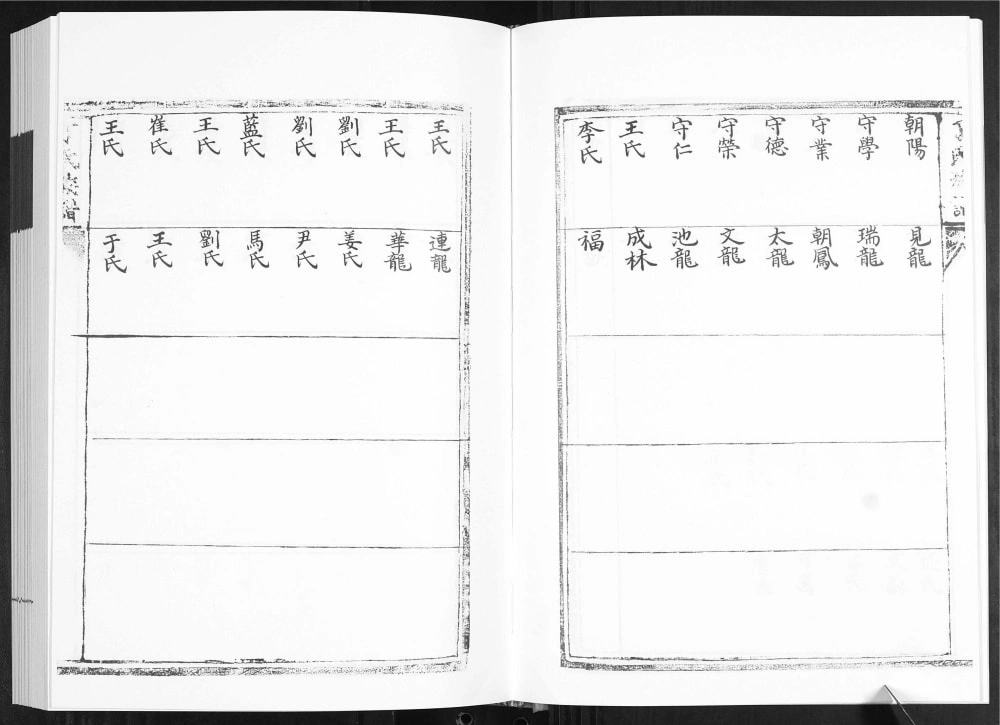 朝陽
守學
守業
守德
守榮
守仁
王氏
李氏
見龍
瑞龍
朝鳳
太龍
文龍
池龍
成林
福
王氏
王氏
劉氏
劉氏
藍氏
王氏
崔氏
王氏
連龍
華龍
姜氏
尹氏
馬氏
劉氏
王氏
于氏